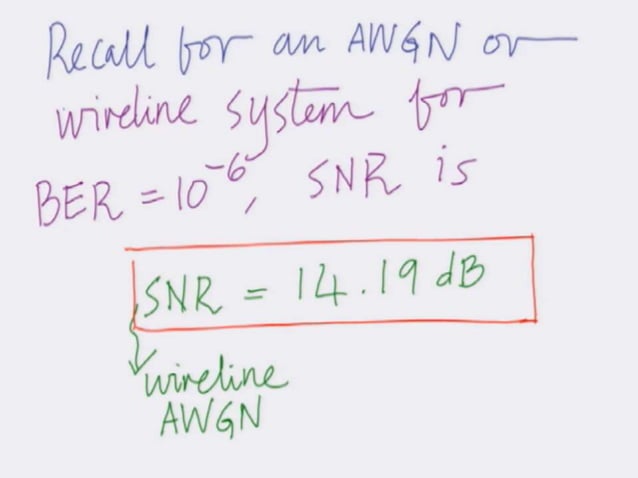 Recall for an AWGN or
wireline system for
BER = 10⁻⁶, SNR is
SNR = 14.19 dB
wireline
AWGN